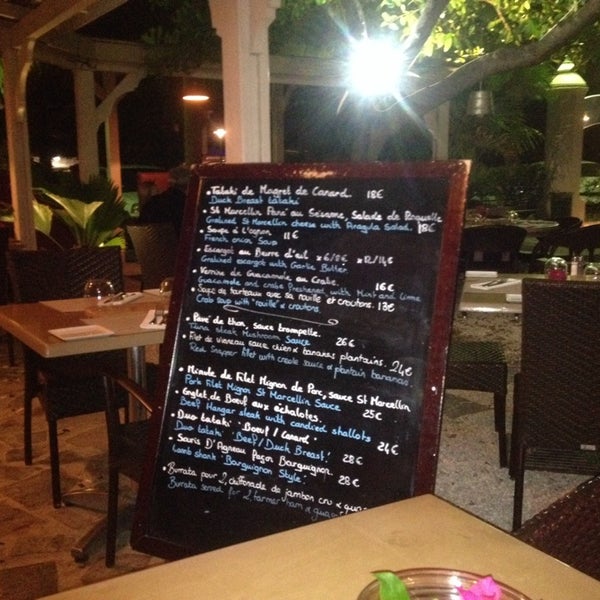 • Tataki de Magret de Canard. 18€
Duck Breast tataki
• St Marcellin Pané au Sésame, Salade de Roquette
Grabined St Marcellin cheese with Arugula Salad. 18€
• Soupe à l'ognon 11€
French onion Soup
• Escargot au Beurre d'ail x6/8€ x12/14€
Grabined escargot with Garlic Butter
• Verrine de Guacamole au Crabe. 16€
Guacamole and crabe with Mint and lime
• Soupe de tourteaux avec sa rouille et croutons. 13€
Crab soup with 'rouille' & croutons.
• Pavé de thon, sauce trompette. 26€
Tuna steak Mushroom Sauce
• Filet de vivaneau sauce chien & bananes plantains. 24€
Red Snapper filet with creole sauce & plantain bananas.
• Minute de Filet Mignon de Porc, sauce St Marcellin
Pork Filet Mignon St Marcellin Sauce 25€
• Onglet de Boeuf aux échalotes.
Beef Hangar steak with candied shallots 24€
• Duo tataki 'Boeuf / Canard.'
Duo tataki 'Beef/Duck Breast' 28€
• Souris D'Agneau façon Bourguignon.
Lamb shank 'Bourguignon Style'. 28€
• Burrata pour 2, chiffonade de jambon cru &
Burrata served for 2, farmer ham &